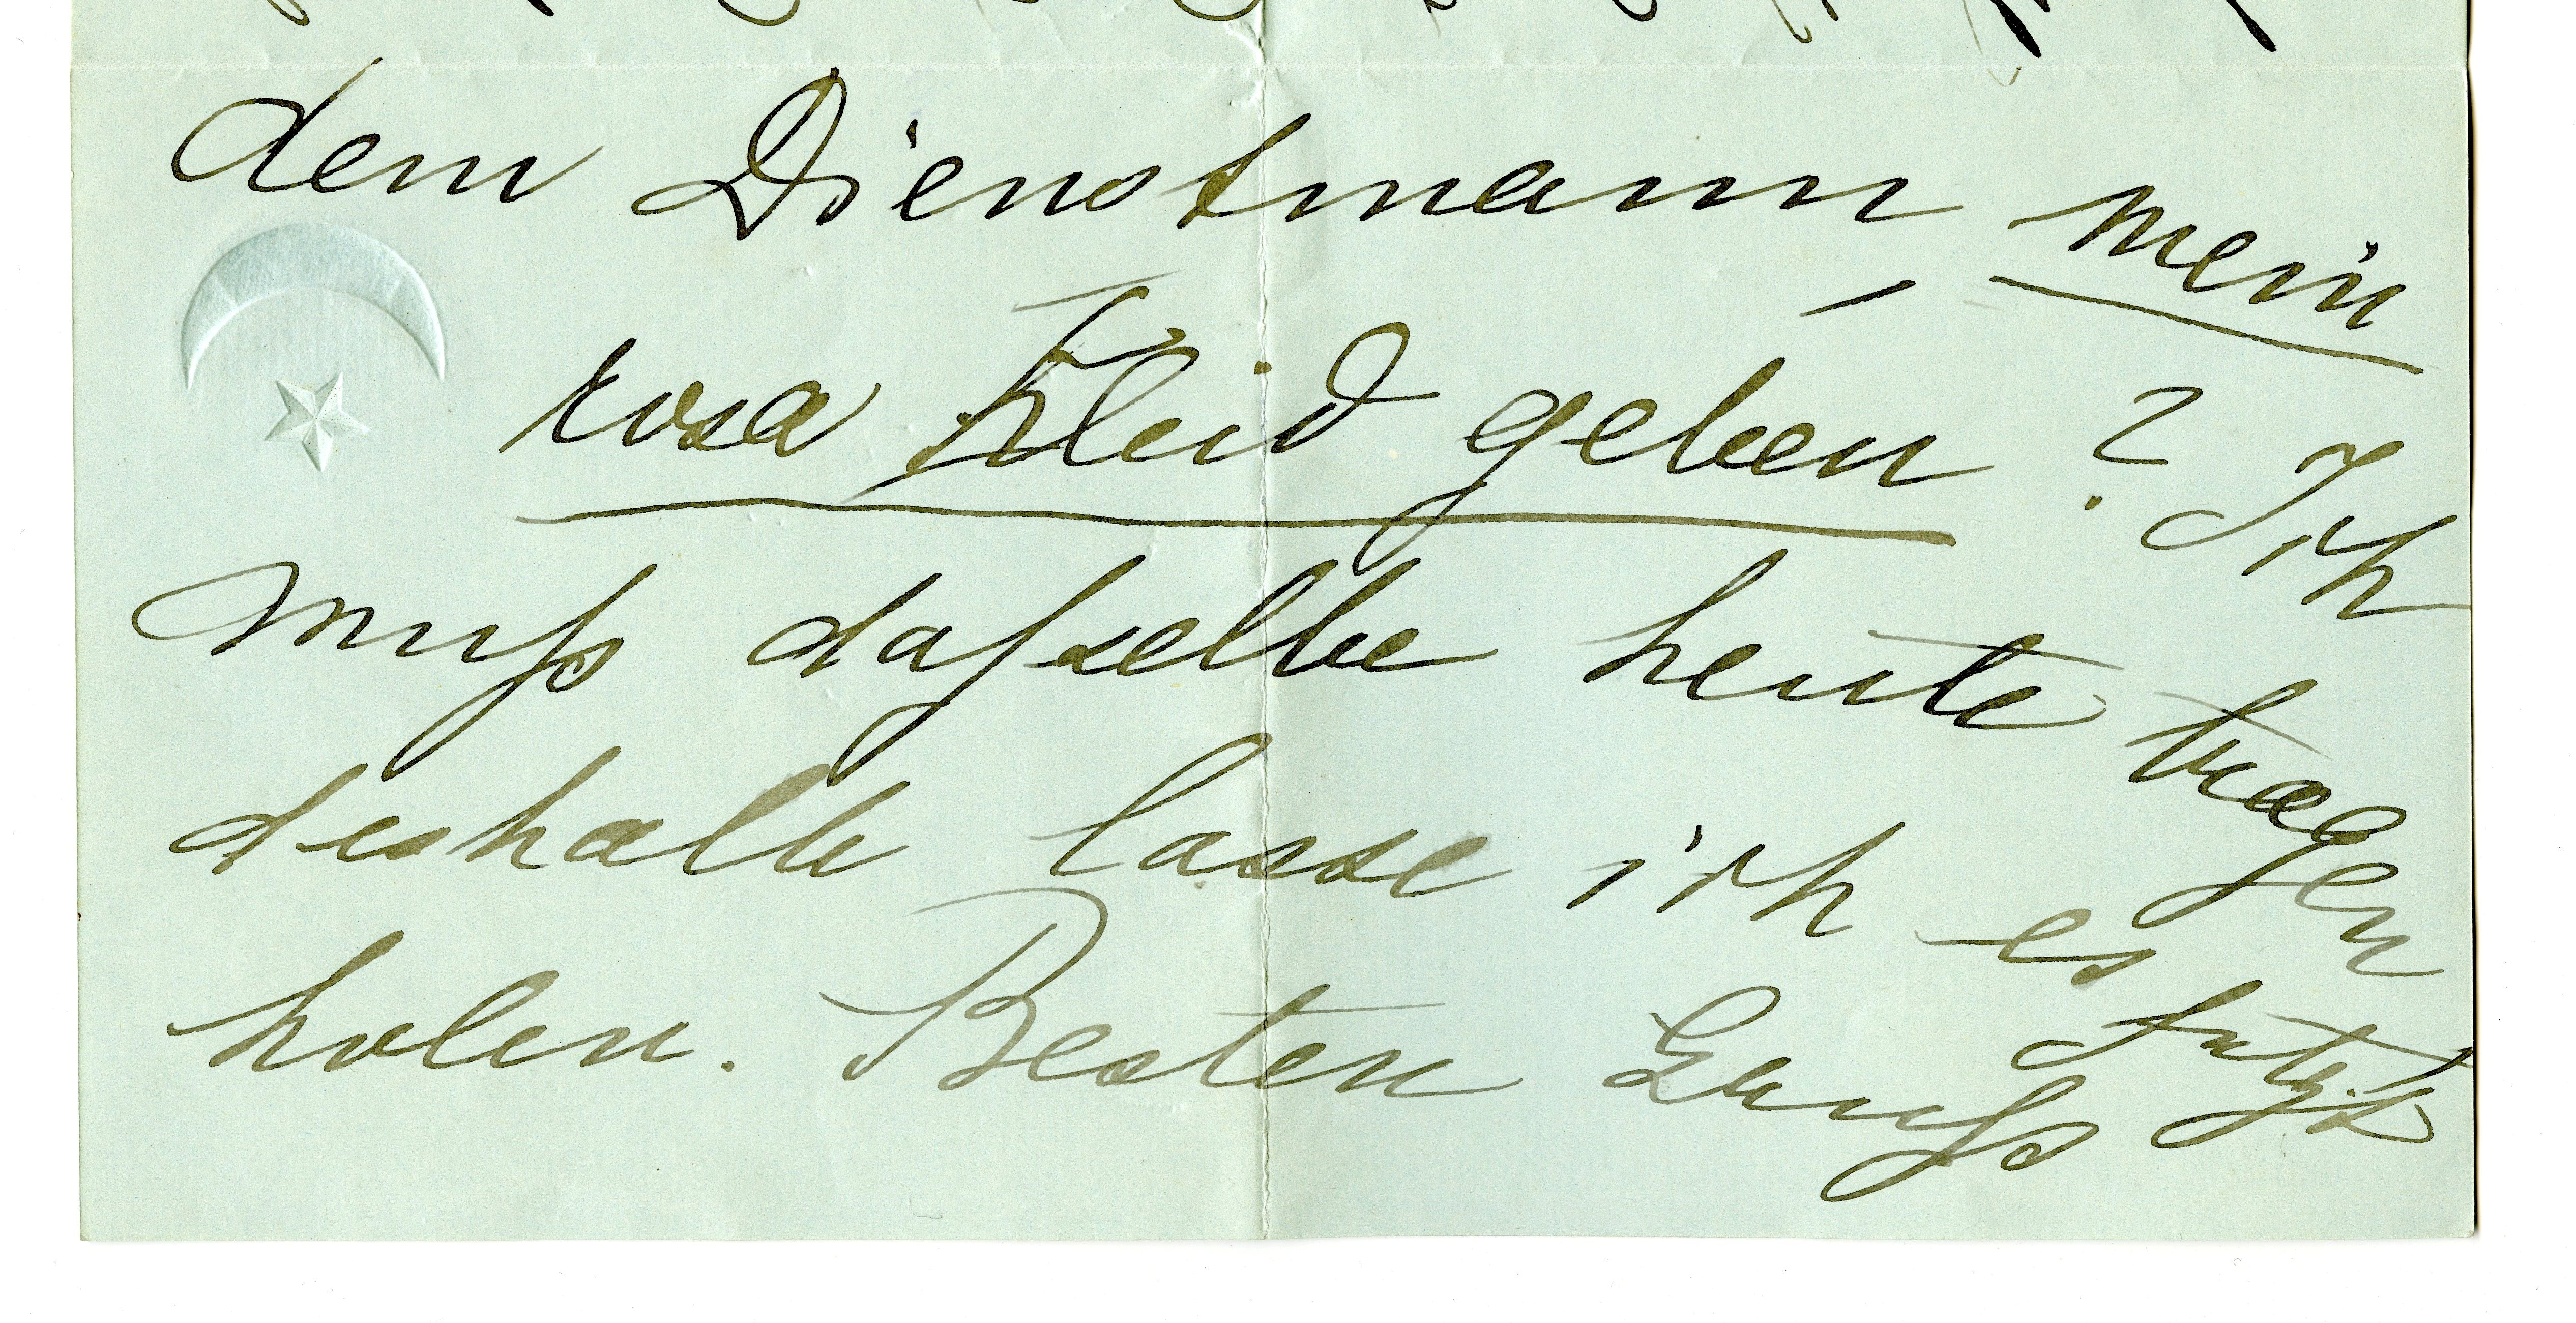 dem Dienstmann mein
rosa Kleid geben? Ich
muß daßselbe heute tragen
deshalb lasse ich es
holen. Besten Gruß